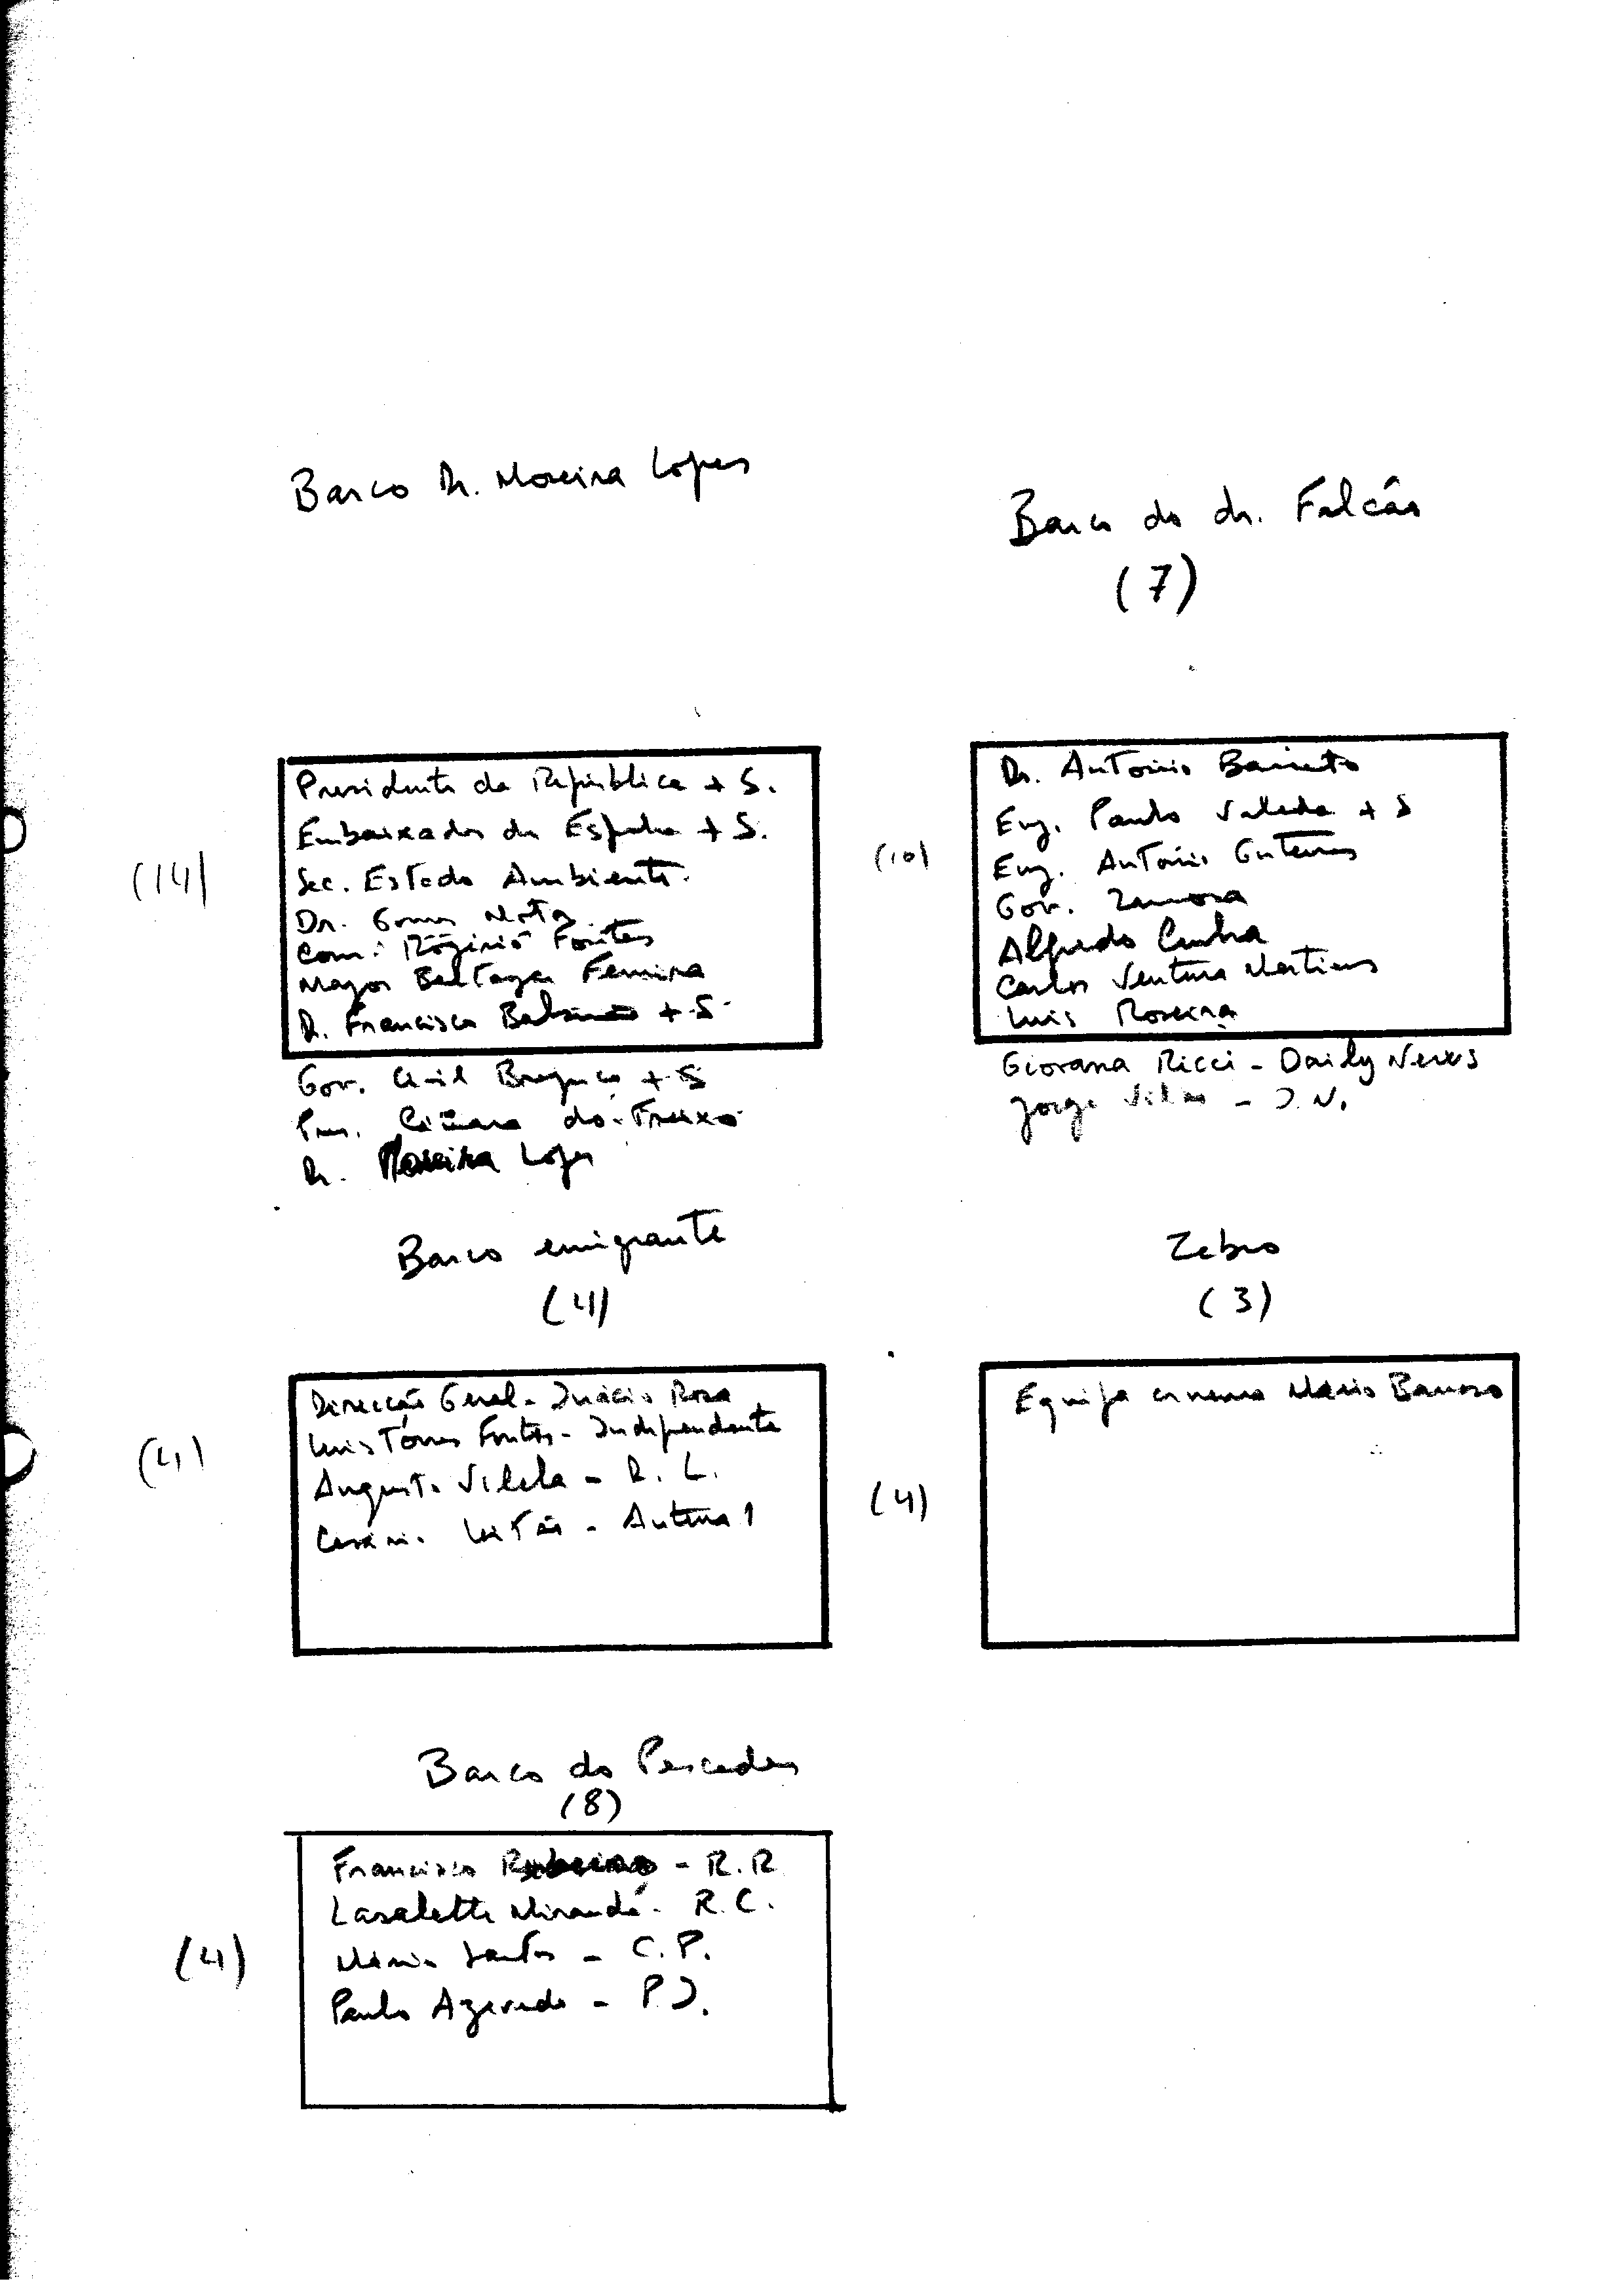 Barco Dr. Moreira Lopes
(14)
Presidente da República + S.
Embaixador de Espanha + S.
Sec. Estado Ambiente.
Dr. Gomes Mota
Com. Rogério Fontes
Major Ferreira
Dr. Francisco + S.
Gov. Civil Bragança + S
Pres. Câmara do Freixo
Dr. Moreira Lopes
Barco do dr. Falcão
(7)
(10)
Dr. António Barreto
Eng. Paulo Valada + S
Eng. António Guterres
Gov. Zamora
Alfredo Cunha
Carlos Ventura Martins
Luis Roseira
Giovana Ricci - Daily News
Jorge Vilas - J.N.
Barco emigrante
(4)
(4)
Direcção Geral - Inácio Rosa
Luis Torres Fontes - Independente
Augusto Vilela - R. L.
Leitão - Antena 1
Zebro
(3)
(4)
Equipa cinema Mário Barroso
Barco do Pescador
(8)
(4)
Francisco - R.R
Lasalette Miranda - R.C.
Mário Santos - C.P.
Paulo Azevedo - P.J.